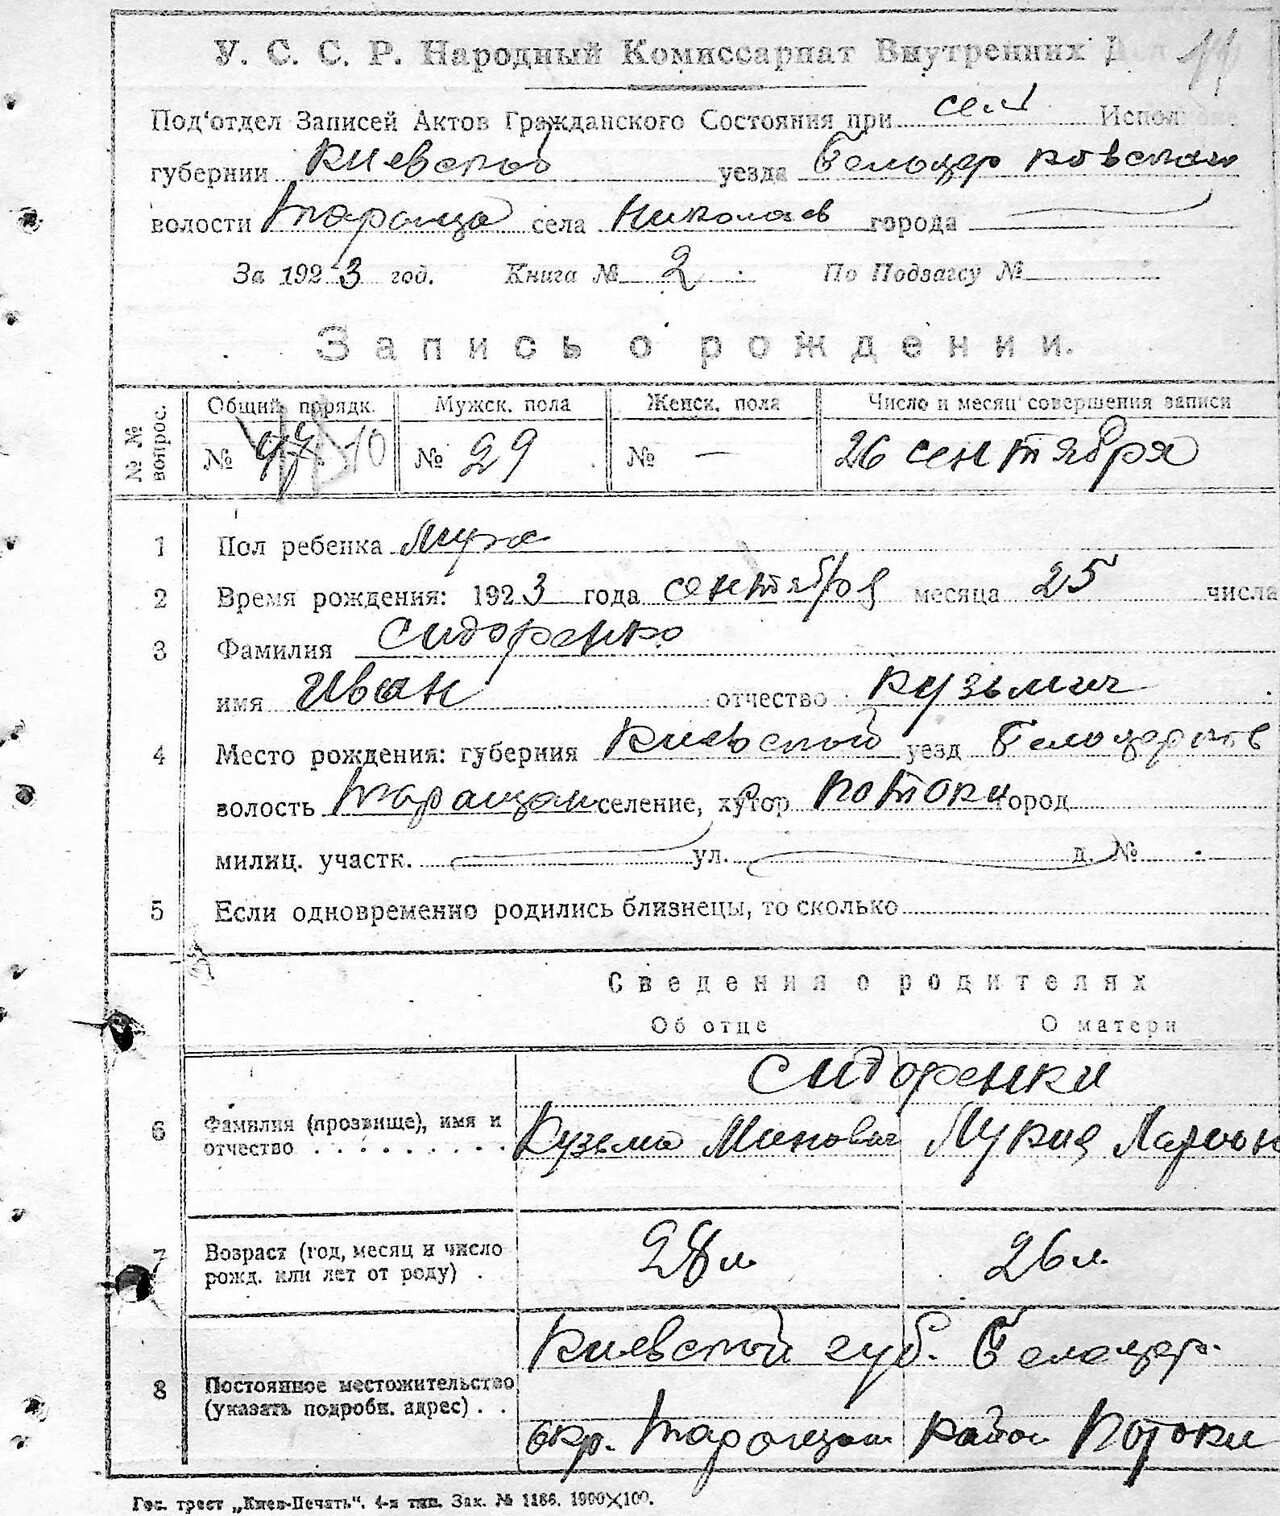 У. С. С. Р. Народный Комиссариат Внутренних Дел
Под'отдел Записей Актов Гражданского Состояния при сел Исполкоме
губернии Киевской уезда Белоцерковского
волости Тараща села Николаев города
За 1923 год. Книга № 2 По Подзагсу №
Запись о рождении.
№№ вопрос.
Общий порядк. Мужск. пола Женск. пола Число и месяц совершения записи
№ 10 № 29 № — 26 сентября
1 Пол ребенка Муж
2 Время рождения: 1923 года сентября месяца 25 числа
3 Фамилия Сидоренко
имя Иван отчество Кузьмич
4 Место рождения: губерния Киевской уезд Белоцерков
волость Таращан селение, хутор Потоки город
милиц. участк. ул. д. №
5 Если одновременно родились близнецы, то сколько
Сведения о родителях
Об отце О матери
Сидоренки
6 Фамилия (прозвище), имя и
отчество Кузьма Минович Лукия Ларион
7 Возраст (год, месяц и число
рожд. или лет от роду) 28 л. 26 л.
Киевской губ. Белоцер.
8 Постоянное местожительство
(указать подробн. адрес)
окр. Таращан район Потоки
Гос. трест „Киев-Печать“. 4-я тип. Зак. № 1186. 1900×100.